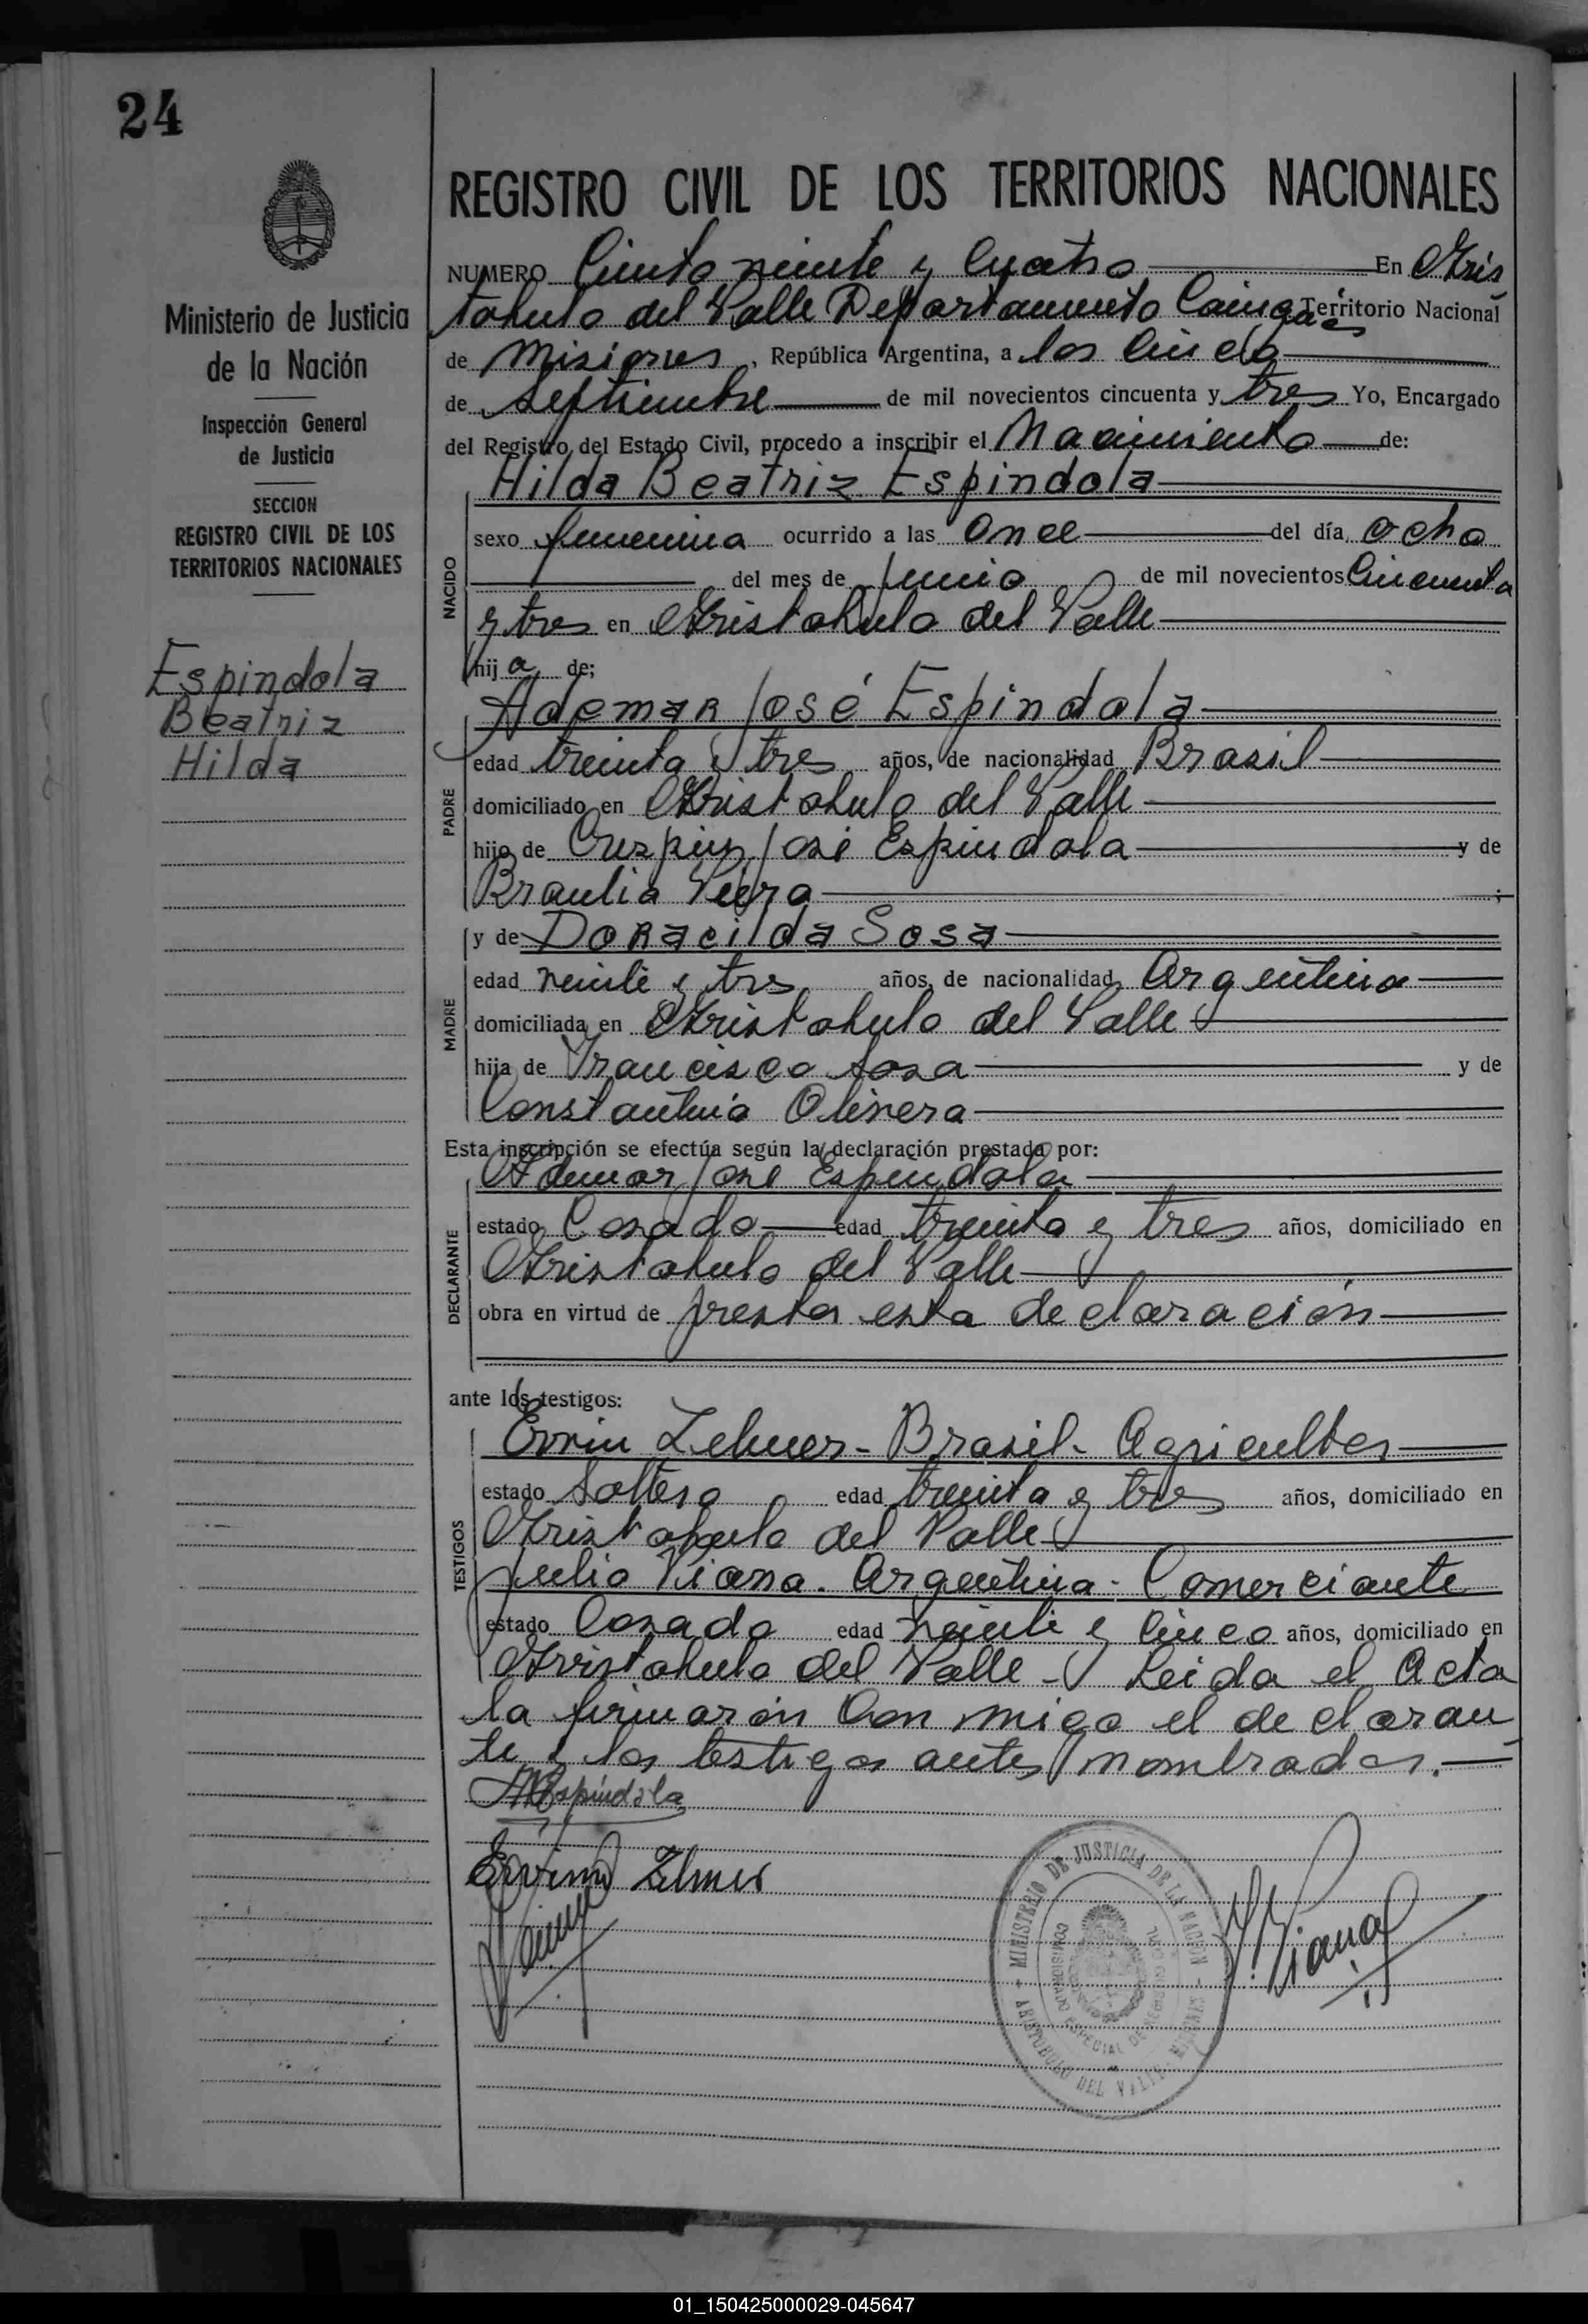 24
REGISTRO CIVIL DE LOS TERRITORIOS NACIONALES
NUMERO Ciento veinte y Cuatro En Aris
tobulo del Valle Departamento Cainguás Territorio Nacional
de Misiones, República Argentina, a los Cinco
de Septiembre de mil novecientos cincuenta y tres Yo, Encargado
del Registro del Estado Civil, procedo a inscribir el Nacimiento de:
Hilda Beatriz Espindola
sexo femenina ocurrido a las Once del día ocho
del mes de Junio de mil novecientos Cincuenta
y tres en Aristobulo del Valle
hija de;
Ademar José Espindola
edad treinta y tres años, de nacionalidad Brasil
domiciliado en Aristobulo del Valle
hijo de Crespin José Espindola y de
Braulia Vieira ;
y de Doracilda Sosa
edad veinte y tres años, de nacionalidad Argentina
domiciliada en Aristobulo del Valle
hija de Francisco Sosa y de
Constantina Olivera
Esta inscripción se efectúa según la declaración prestada por:
Ademar José Espindola
estado Casado edad treinta y tres años, domiciliado en
Aristobulo del Valle
obra en virtud de prestar esta declaración
ante los testigos:
Ervin Zelmer - Brasil - Agricultor
estado Soltero edad treinta y tres años, domiciliado en
Aristobulo del Valle
Julio Viana. Argentina - Comerciante
estado Casado edad veinte y Cinco años, domiciliado en
Aristobulo del Valle - Leida el Acta
la firmarón Con migo el declaran
te y los testigos antes nombrados.
Espindola
Ervino Zelmer
J. Viana
MINISTERIO DE JUSTICIA DE LA NACION - ARISTOBULO DEL VALLE - MISIONES
Ministerio de Justicia
de la Nación
Inspección General
de Justicia
SECCION
REGISTRO CIVIL DE LOS
TERRITORIOS NACIONALES
Espindola
Beatriz
Hilda
NACIDO
PADRE
MADRE
DECLARANTE
TESTIGOS
01_150425000029-045647